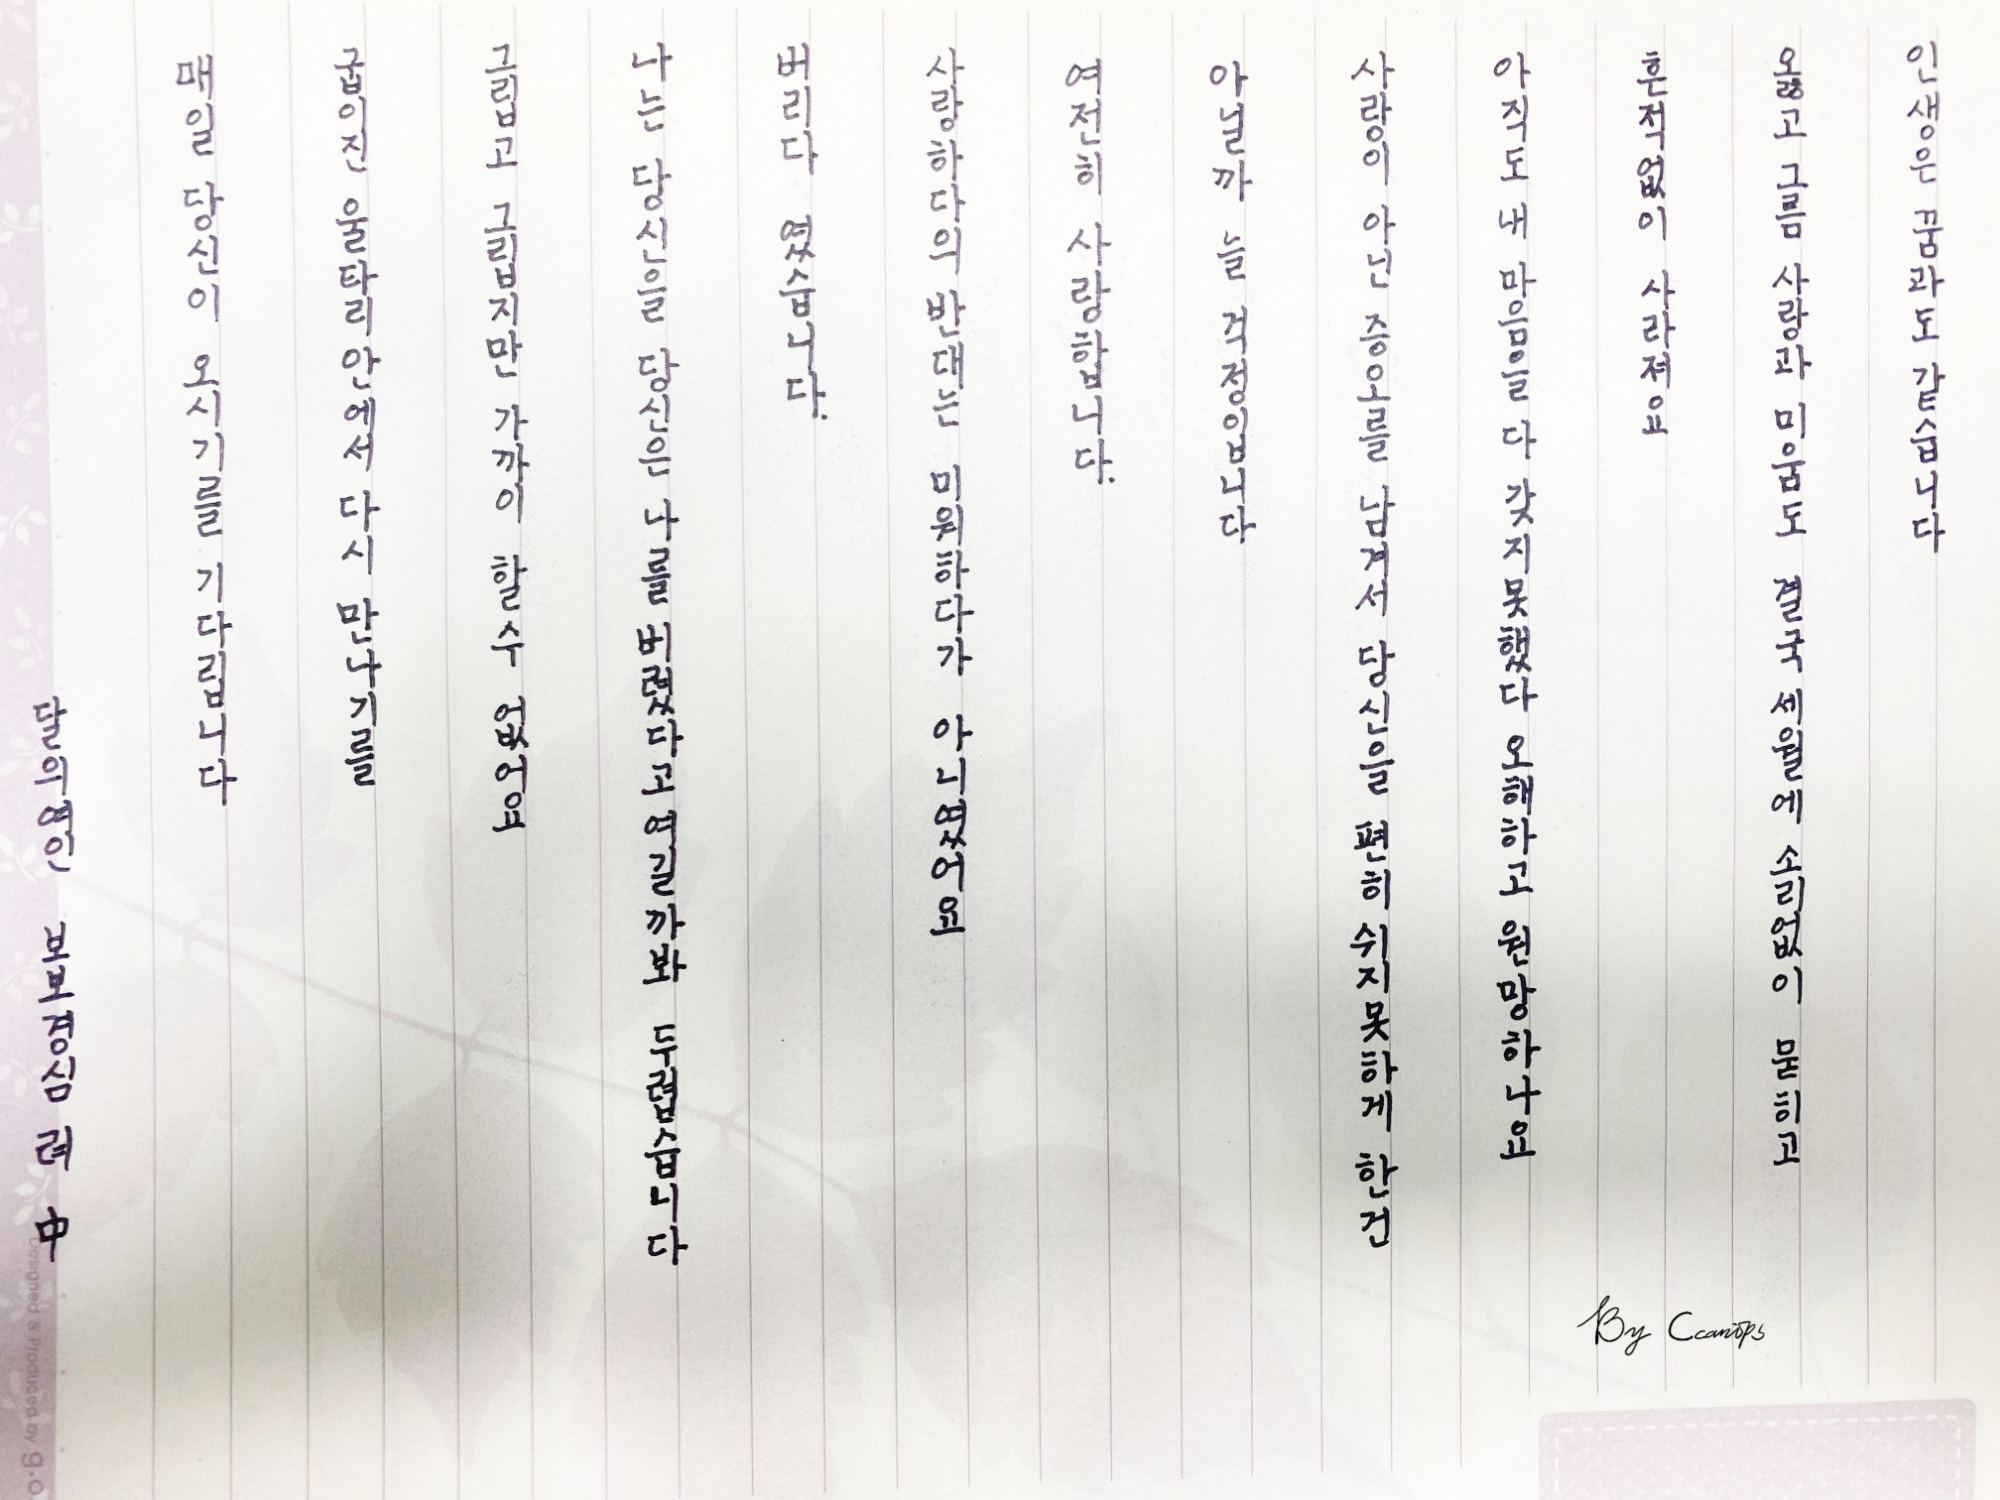 인생은 꿈과도 같습니다
옳고 그름 사랑과 미움도 결국 세월에 소리없이 묻히고
흔적없이 사라져요
아직도 내 마음을 다 갖지못했다 오해하고 원망하나요
사랑이 아닌 증오를 남겨서 당신을 편히 쉬지못하게 한건
아닐까 늘 걱정입니다
여전히 사랑합니다.
사랑하다의 반대는 미워하다가 아니었어요
버리다 였습니다.
나는 당신을 당신은 나를 버렸다고 여길까봐 두렵습니다
그립고 그립지만 가까이 할수 없어요
굽이진 울타리 안에서 다시 만나기를
매일 당신이 오시기를 기다립니다
달의연인 보보경심 려 中
By Ccanips
Designed & Produced by g.o